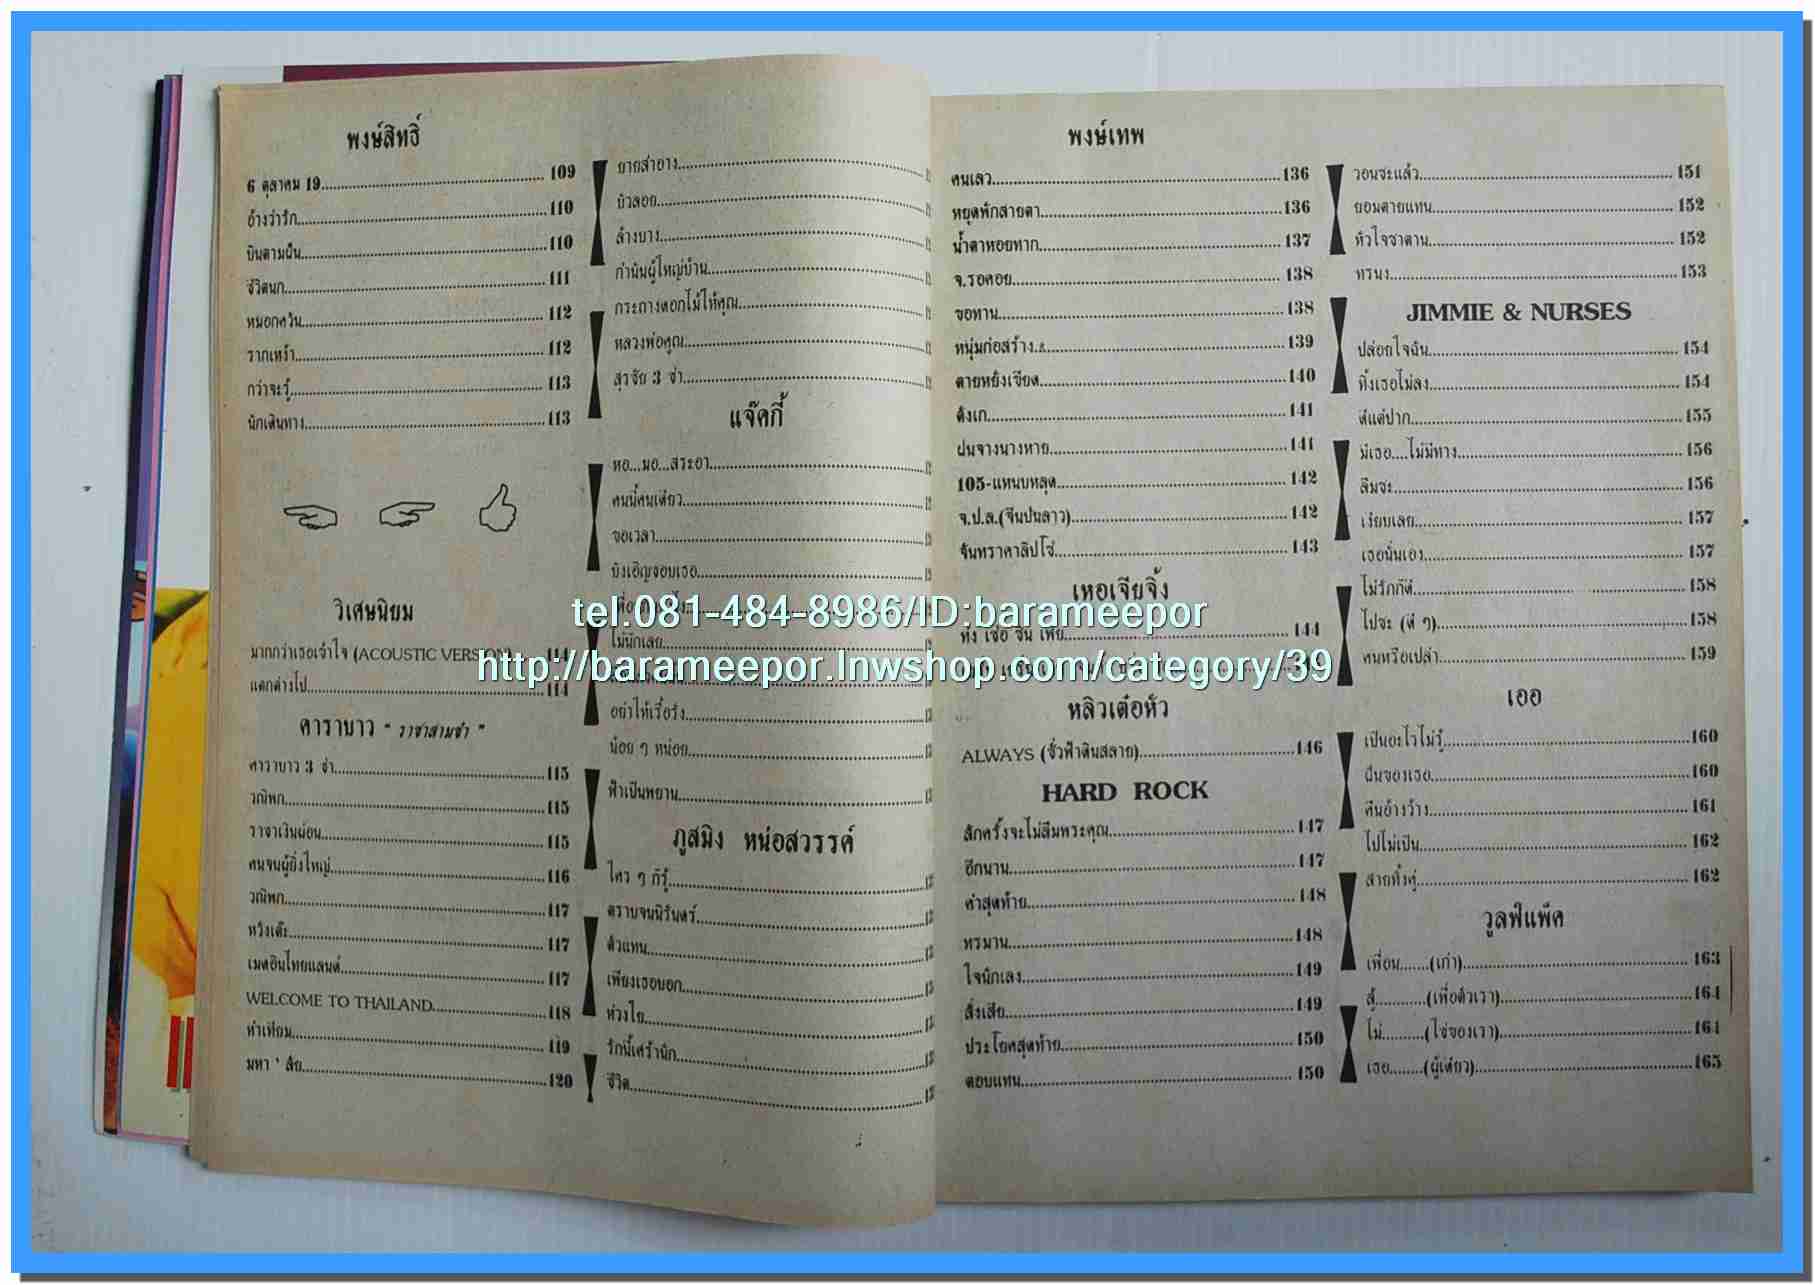 พงษ์สิทธิ์
6 ตุลาคม 19 109
อ้างว่ารัก 110
บินตามฝัน 110
ชีวิตนก 111
หมอกควัน 112
รากเหง้า 112
กว่าจะรู้ 113
นักเดินทาง 113
วิเศษนิยม
มากกว่าเธอเข้าใจ (ACOUSTIC VERSION) 114
แตกต่างไป 114
คาราบาว " ราชาสามช่า "
คาราบาว 3 ช่า 115
วณิพก 115
ราชาเงินผ่อน 115
คนจนผู้ยิ่งใหญ่ 116
วณิพก 117
หรั่งเต๊ะ 117
เมดอินไทยแลนด์ 117
WELCOME TO THAILAND 118
ทำเทียม 119
มหา ' ลัย 120
ยายสำอาง
บัวลอย
ล้างบาง
กำนันผู้ใหญ่บ้าน
กระถางดอกไม้ให้คุณ
หลวงพ่อคูณ
สุรชัย 3 ช่า
แจ๊คกี้
หอ...มอ...สระอา
คนนี้คนเดียว
ขอเวลา
บังเอิญชอบเธอ
ไม่นักเลย
อย่าให้เรื้อรัง
น้อย ๆ หน่อย
ฟ้าเป็นพยาน
ภูสมิง หน่อสวรรค์
ใคร ๆ ก็รู้
ตราบจนนิรันดร์
ตัวแทน
เพียงเธอบอก
ห่วงใย
รักนี้เศร้านัก
ชีวิต
พงษ์เทพ
คนเลว 136
หยุดพักสายตา 136
น้ำตาหอยทาก 137
จ.รอคอย 138
ขอทาน 138
หนุ่มก่อสร้าง 139
ตายหยังเขียด 140
ตังเก 141
ฝนจางนางหาย 141
105-แหนบหลุด 142
จ.ป.ล.(จีนปนลาว) 142
จันทราคาลิปโซ่ 143
เหอเจียจิ้ง
144
หลิวเต๋อหัว
ALWAYS (ชั่วฟ้าดินสลาย) 146
HARD ROCK
สักครั้งจะไม่ลืมพระคุณ 147
อีกนาน 147
คำสุดท้าย 148
ทรมาน 148
ใจนักเลง 149
สั่งเสีย 149
ประโยคสุดท้าย 150
ตอบแทน 150
วอนซะแล้ว 151
ยอมตายแทน 152
หัวใจซาตาน 152
ทรนง 153
JIMMIE & NURSES
ปล่อยใจฉัน 154
ทิ้งเธอไม่ลง 154
ดีแต่ปาก 155
มีเธอ....ไม่มีทาง 156
ลืมซะ 156
เงียบเลย 157
เธอนั่นเอง 157
ไม่รักก็ดี 158
ไปซะ (ดี ๆ) 158
คนหรือเปล่า 159
เออ
เป็นอะไรไม่รู้ 160
ฝันของเธอ 160
คืนอ้างว้าง 161
ไปไม่เป็น 162
สายทิ้งคู่ 162
วูลฟ์แพ็ค
เพื่อน.......(เก่า) 163
สู้...........(เพื่อตัวเรา) 164
ไม่........(ใช่ของเรา) 164
เธอ........(ผู้เดียว) 165
tel.081-484-8986/ID:barameepor
http://barameepor.lnwshop.com/category/39